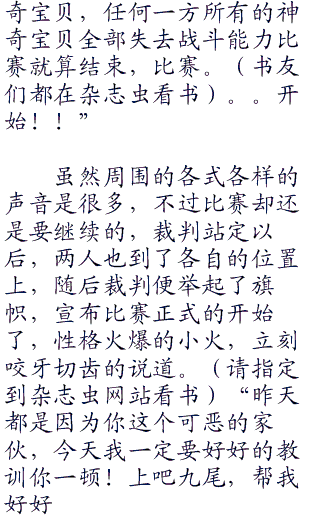 奇宝贝，任何一方所有的神
奇宝贝全部失去战斗能力比
赛就算结束，比赛。（书友
们都在杂志虫看书）。。开
始！！”
虽然周围的各式各样的
声音是很多，不过比赛却还
是要继续的，裁判站定以
后，两人也到了各自的位置
上，随后裁判便举起了旗
帜，宣布比赛正式的开始
了，性格火爆的小火，立刻
咬牙切齿的说道。（请指定
到杂志虫网站看书）“昨天
都是因为你这个可恶的家
伙，今天我一定要好好的教
训你一顿！上吧九尾，帮我
好好